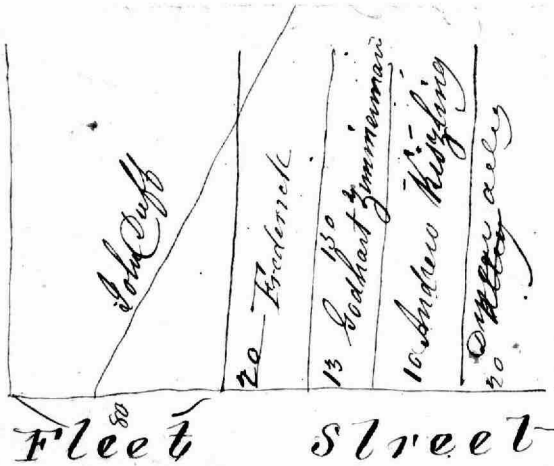 John Duff
20 Frederick
130
13 Godhart Zimmerman
10 Andrew Kiszling
20
80
Fleet Street